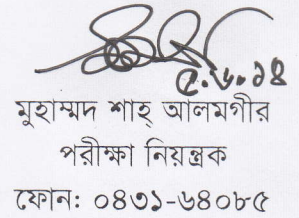 ৫.৬.১৪
মুহাম্মদ শাহ্ আলমগীর
পরীক্ষা নিয়ন্ত্রক
ফোন: ০৪৩১-৬৪০৮৫